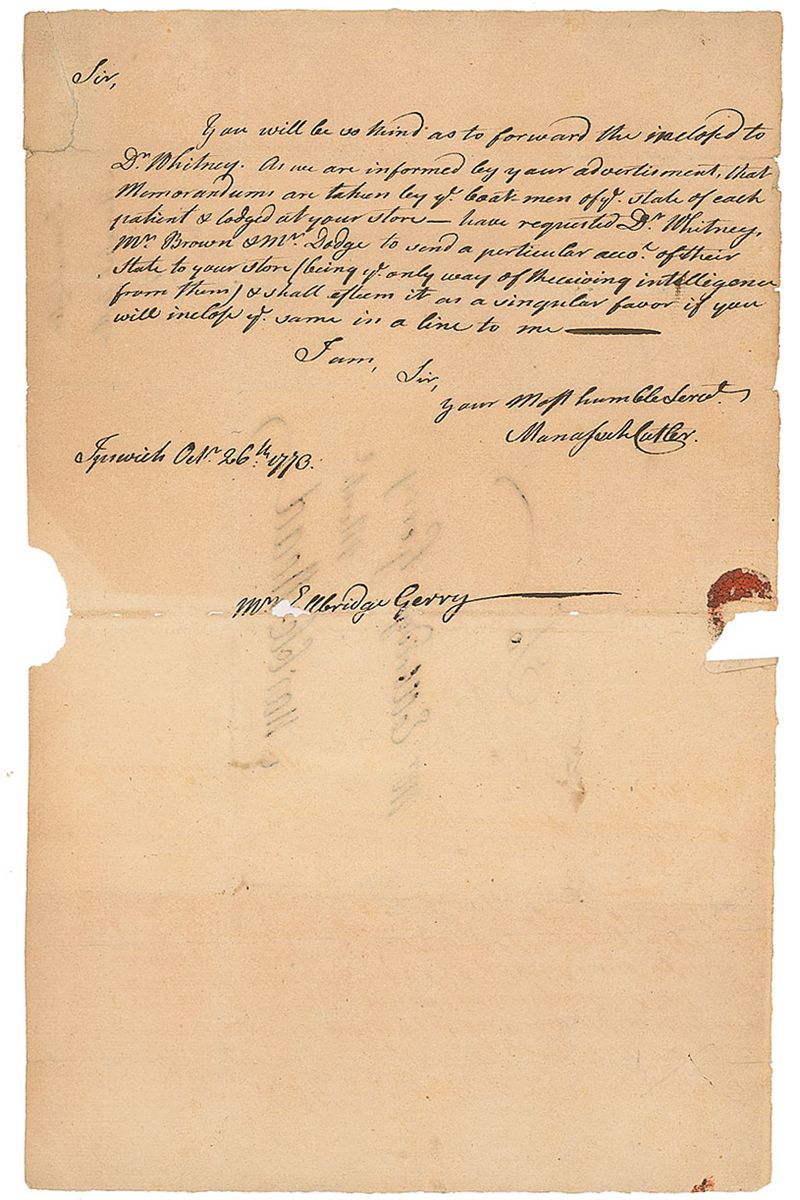 Sir,
You will be so kind as to forward the inclosed to
Dr. Whitney. As we are informed by your advertisment, that
Memorandums are taken by ye. boat-men of ye. state of each
patient & lodged at your store — have requested Dr. Whitney,
Mr. Brown & Mr. Dodge to send a particular acco.t of their
State to your store (being ye. only way of Receiving intelligence
from them) & shall esteem it as a singular favor if you
will inclose ye. same in a line to me —
I am, Sir,
your Most humble Servt.
Manasseh Cutler.
Ipswich Octr. 26.th 1773.
Mr. Elbridge Gerry